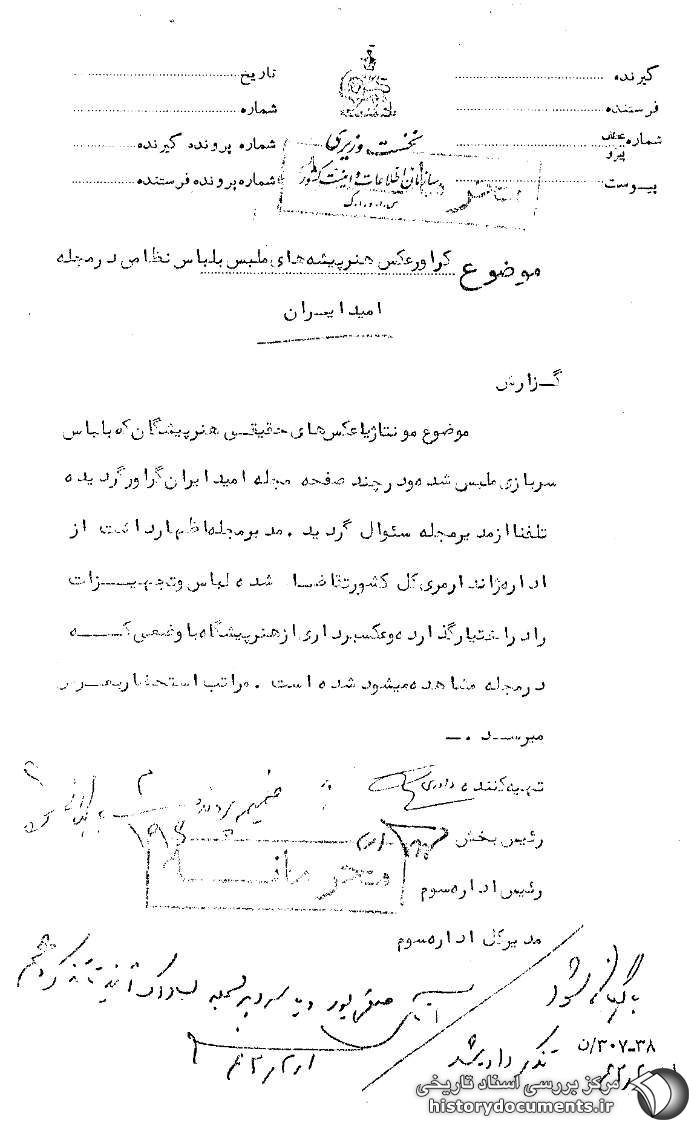 گیرنده
تاریخ
فرستنده
شماره
شماره عطف پیرو
شماره پرونده گیرنده
پیوست
شماره پرونده فرستنده
نخست وزیری
سازمان اطلاعات و امنیت کشور
س.ا.و.ا.ک
موضوع گراور عکس هنرپیشه‌های ملبس بلباس نظامی در مجله
امید ایران
گزارش
موضوع مونتاژ یا عکس‌های حقیقی هنرپیشگان که بلباس
سربازی ملبس شده و در چند صفحه مجله امید ایران گراور گردیده
تلفنا از مدیر مجله سئوال گردید . مدیر مجله اظهار داشت از
اداره ژاندارمری کل کشور تقاضا شده لباس و تجهیزات
را در اختیار گذارده و عکسبرداری از هنرپیشگاه با وضعی که
در مجله مشاهده میشود شده است . مراتب استحضارا بعرض
میرسد . ــ
تهیه کننده داوری
ضمیمه پرونده
رئیس بخش
محرمانه
رئیس اداره سوم
مدیر کل اداره سوم
بایگانی شود
تذکر داده شد
۳۸-۳۰۷/ن
مرکز بررسی اسناد تاریخی
historydocuments.ir